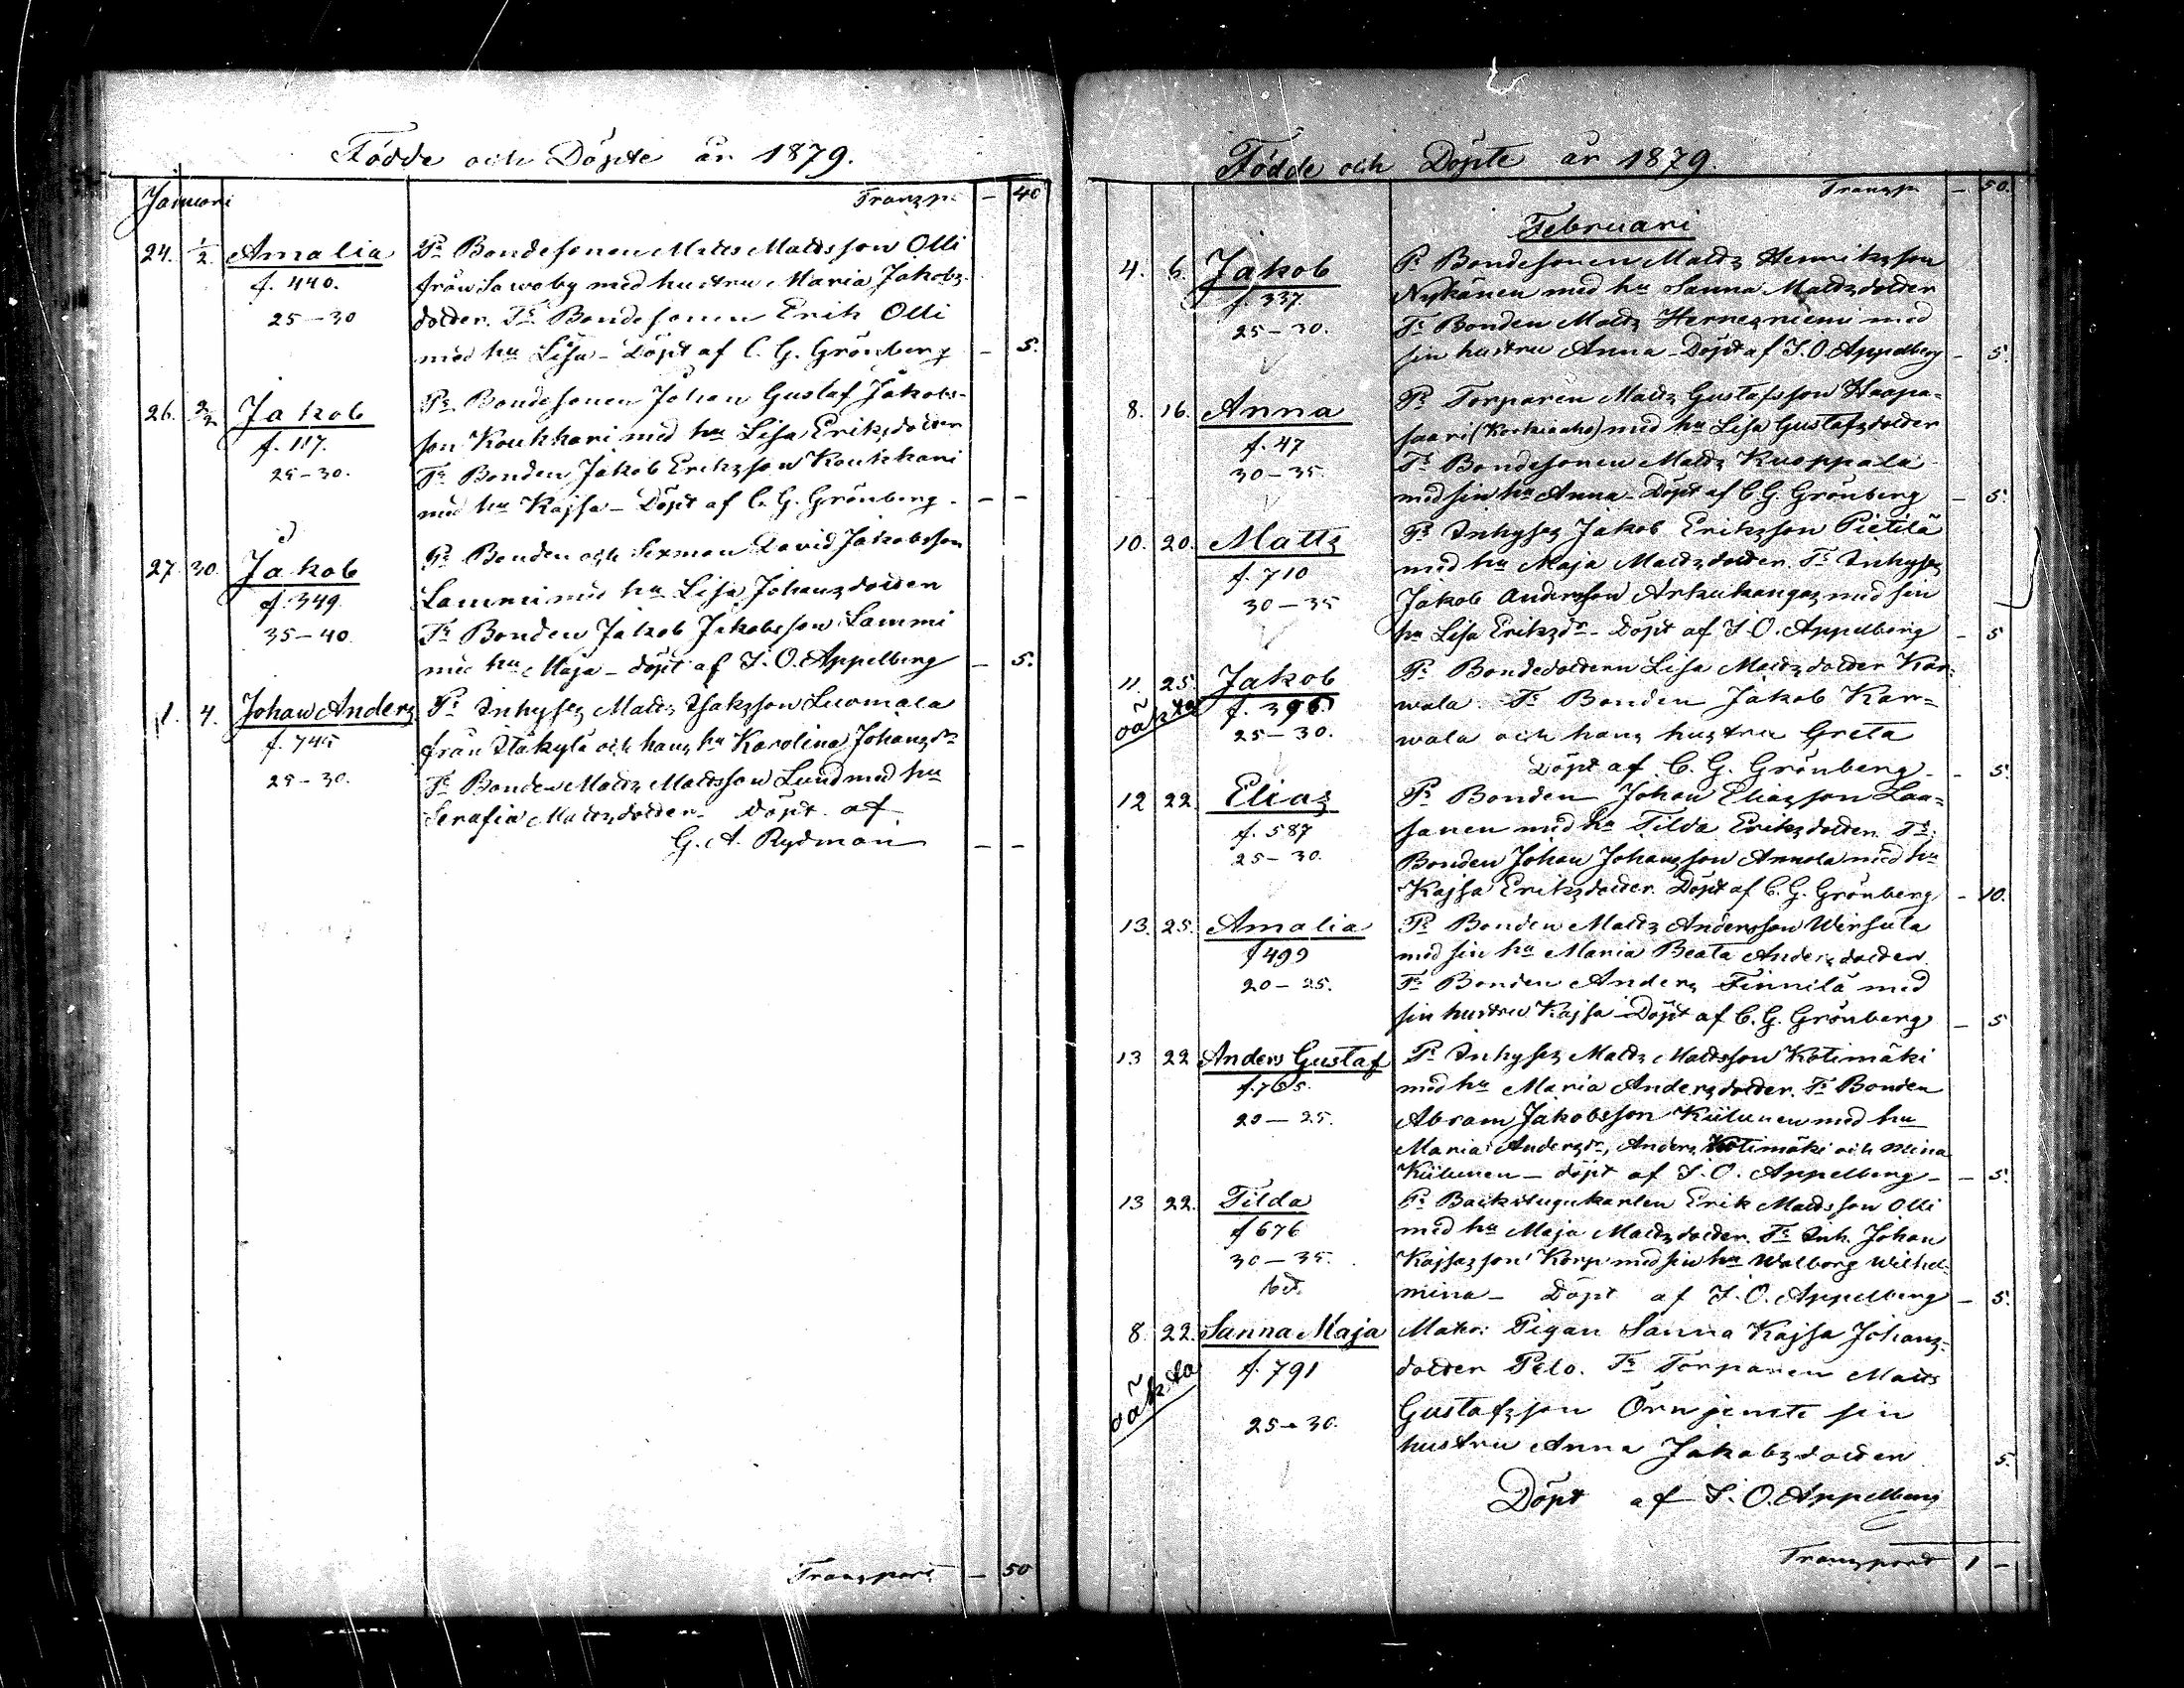 Födde och Döpte år 1879.
Januari
Transp. — 40
24. 1/2. Amalia Pr. Bondesonen Matts Mattsson Olli
f. 440. från Sawoby med hustru Maria Jakobs-
25–30 dotter. Tr. Bondesonen Erik Olli
med hu Lisa – Döpt af C. G. Grönberg — 5.
26. 2/2 Jakob Pr. Bondesonen Johan Gustaf Jakobs-
f. 117. son Koukkari med hu Lisa Eriksdotter
25–30. Tr. Bonden Jakob Eriksson Koukkari
med hu Kajsa – Döpt af C. G. Grönberg. — —
27. 30. Jakob Pr. Bonden och Sexman David Jakobsson
f. 349. Lammi med hu Lisa Johansdotter
35–40. Tr. Bonden Jakob Jakobsson Lammi
med hu Maja – döpt af J. O. Appelberg — 5.
1. 4. Johan Anders Pr. Inhyses Matts Isaksson Luomala
f. 745 från Itäkylä och hans hu Karolina Johansdr
25–30. Tr. Bonden Matts Mattsson Lund med hu
Serafia Mattsdotter. Döpt af
G. A. Rydman — —
Transport — 50
Födde och Döpte år 1879.
Transp. — 50.
Februari
4. 6. Jakob Pr. Bondesonen Matts Henriksson
f. 337. Nykänen med hu Sanna Mattsdotter
25–30. Tr. Bonden Matts Hernesniemi med
sin hustru Anna – Döpt af J. O. Appelberg — 5.
8. 16. Anna Pr. Torparen Matts Gustafsson Haapa-
f. 47 saari (Korkiaaho) med hu Lisa Gustafsdotter
30–35. Tr. Bondesonen Matts Kuoppala
med sin hu Anna – Döpt af C. G. Grönberg — 5.
10. 20. Matts Pr. Inhyses Jakob Eriksson Pietilä
f. 710 med hu Maja Mattsdotter. Tr. Inhyses
30–35 Jakob Andersson Arkukangas med sin
hu Lisa Eriksdr – Döpt af J. O. Appelberg — 5
11. 25. Jakob Pr. Bondedottern Lisa Mattsdotter Kar-
oäkta f. 396. wala. Tr. Bonden Jakob Kar=
25–30. wala och hans hustru Greta
Döpt af C. G. Grönberg — 5.
12 22. Elias Pr. Bonden Johan Eliasson Laa=
f. 587 sanen med hu Tilda Eriksdotter. Tr:
25–30. Bonden Johan Johansson Annola med hu
Kajsa Eriksdotter. Döpt af C. G. Grönberg — 10.
13. 25. Amalia Pr. Bonden Matts Andersson Wirsula
f 499 med sin hu Maria Beata Andersdotter.
20–25. Tr. Bonden Anders Finnilä med
sin hustru Kajsa – Döpt af C. G. Grönberg — 5
13 22 Anders Gustaf Pr. Inhyses Matts Mattsson Kotimäki
f. 765. med hu Maria Andersdotter. Tr. Bonden
20–25. Abram Jakobsson Kiilunen med hu
Maria Andersdr, Anders Kotimäki och Mina
Kiilunen – döpt af J. O. Appelberg — 5.
13 22. Tilda Pr. Backstugukarlen Erik Mattsson Olli
f 676 med hu Maja Mattsdotter. Tr. Inh. Johan
30–35. Kajsasson Korp med sin hu Walborg Wilhel=
mina – Döpt af J. O. Appelberg — 5.
8. 22. Sanna Maja Mater: Pigan Sanna Kajsa Johans-
oäkta f. 791 dotter Pelo. Tr. Torparen Matts
25–30. Gustafsson Örn jemte sin
hustru Anna Jakobsdotter. 5.
Döpt af J. O. Appelberg
Transport 1 —